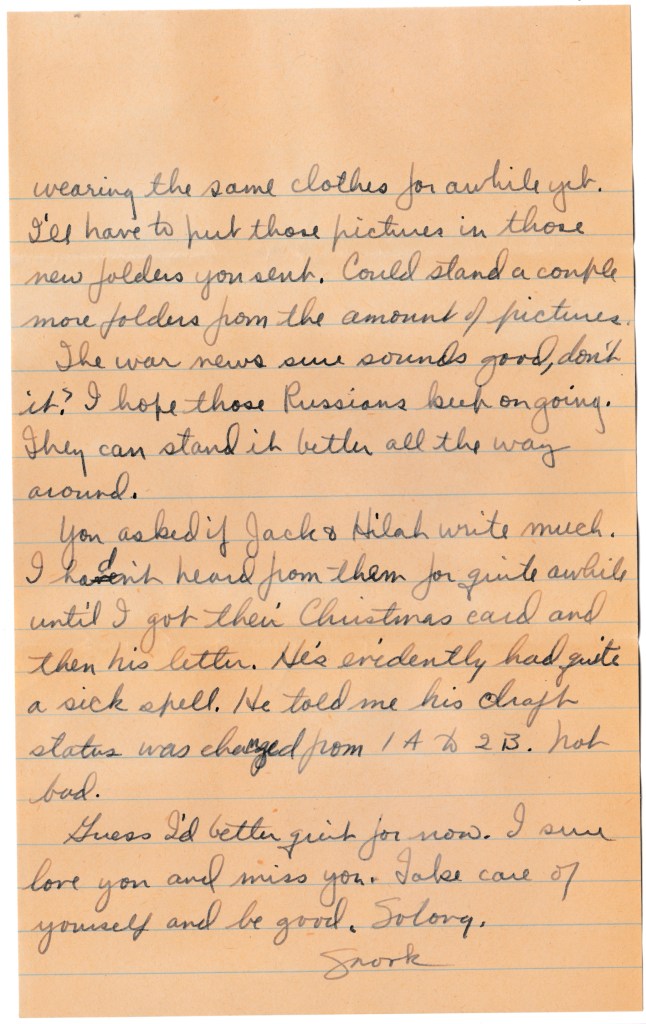 wearing the same clothes for awhile yet.
I'll have to put those pictures in those
new folders you sent. Could stand a couple
more folders from the amount of pictures.
The war news sure sounds good, don't
it? I hope those Russians keep on going.
They can stand it better all the way
around.
You asked if Jack & Hilah write much.
I hadn't heard from them for quite awhile
until I got their Christmas card and
then his letter. He's evidently had quite
a sick spell. He told me his draft
status was changed from 1A to 2B. Not
bad.
Guess I'd better quit for now. I sure
love you and miss you. Take care of
yourself and be good. So long.
Snork